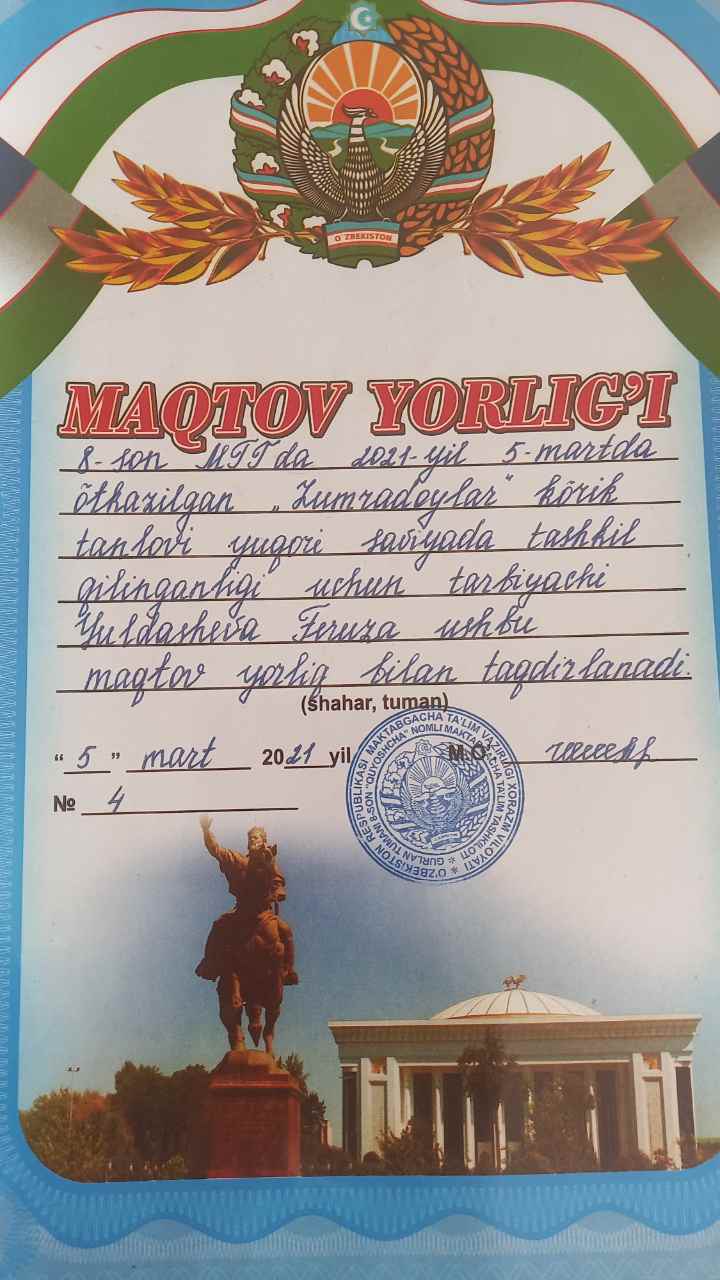 O'ZBEKISTON
MAQTOV YORLIG'I
8-son MTT'da 2021-yil 5-martda
õtkazilgan „Zumradoylar" kõrik
tanlovi yuqori saviyada tashkil
qilinganligi uchun tarbiyachi
Yuldasheva Feruza ushbu
maqtov yorliq bilan taqdirlanadi.
(shahar, tuman)
“ 5 ” mart 2021 yil M.O‘
№ 4
O'ZBEKISTON RESPUBLIKASI MAKTABGACHA TA'LIM VAZIRLIGI XORAZM VILOYATI
GURLAN TUMANI 8-SON "QUYOSHCHA" NOMLI MAKTABGACHA TA'LIM TASHKILOTI